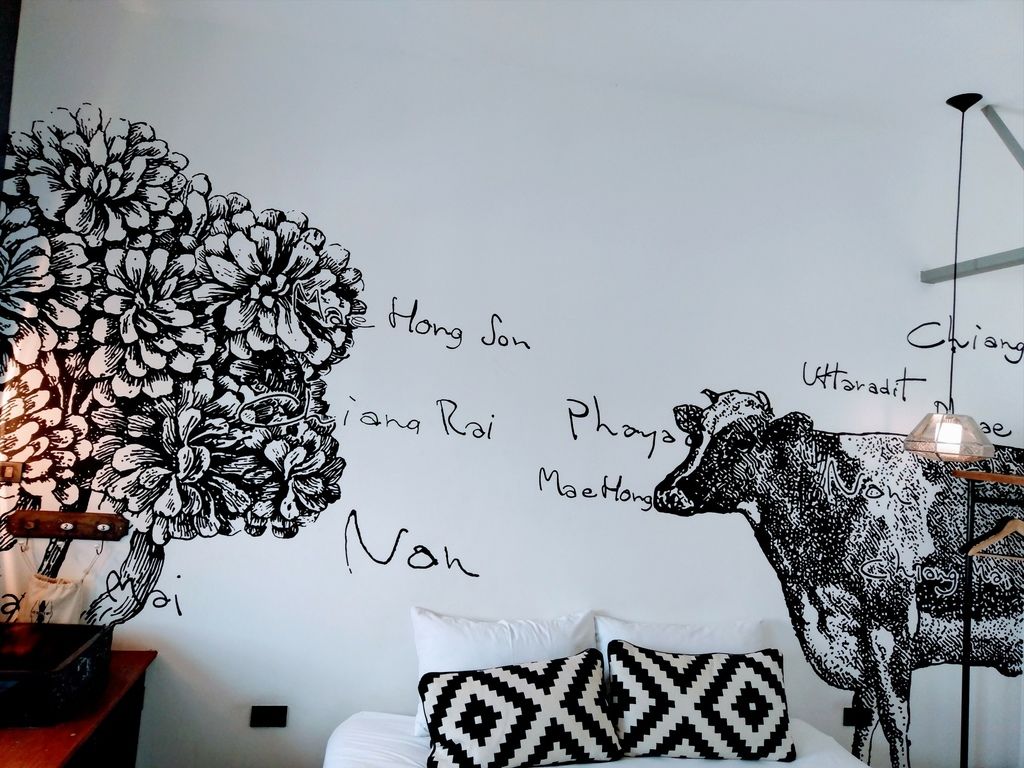 Mae Hong Son
Chiang Rai
Nan
Phaya
Mae Hong
Uttaradit
Chiang
Nan
Chiang Rai